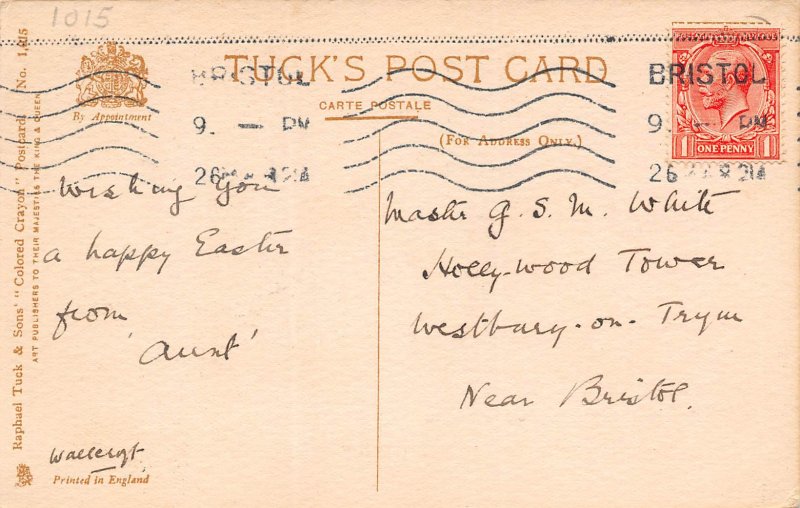 1015
TUCK'S POST CARD
CARTE POSTALE
(FOR ADDRESS ONLY.)
By Appointment
BRISTOL
9. — PM
26
BRISTOL
9. — PM
26
ONE PENNY
1 1
Wishing you
a happy Easter
from
'Aunt'
Master G. S. M. White
Hollywood Tower
Westbury-on-Trym
Near Bristol.
Printed in England
Raphael Tuck & Sons' "Colored Crayon" Postcard No. 1015
ART PUBLISHERS TO THEIR MAJESTIES THE KING & QUEEN